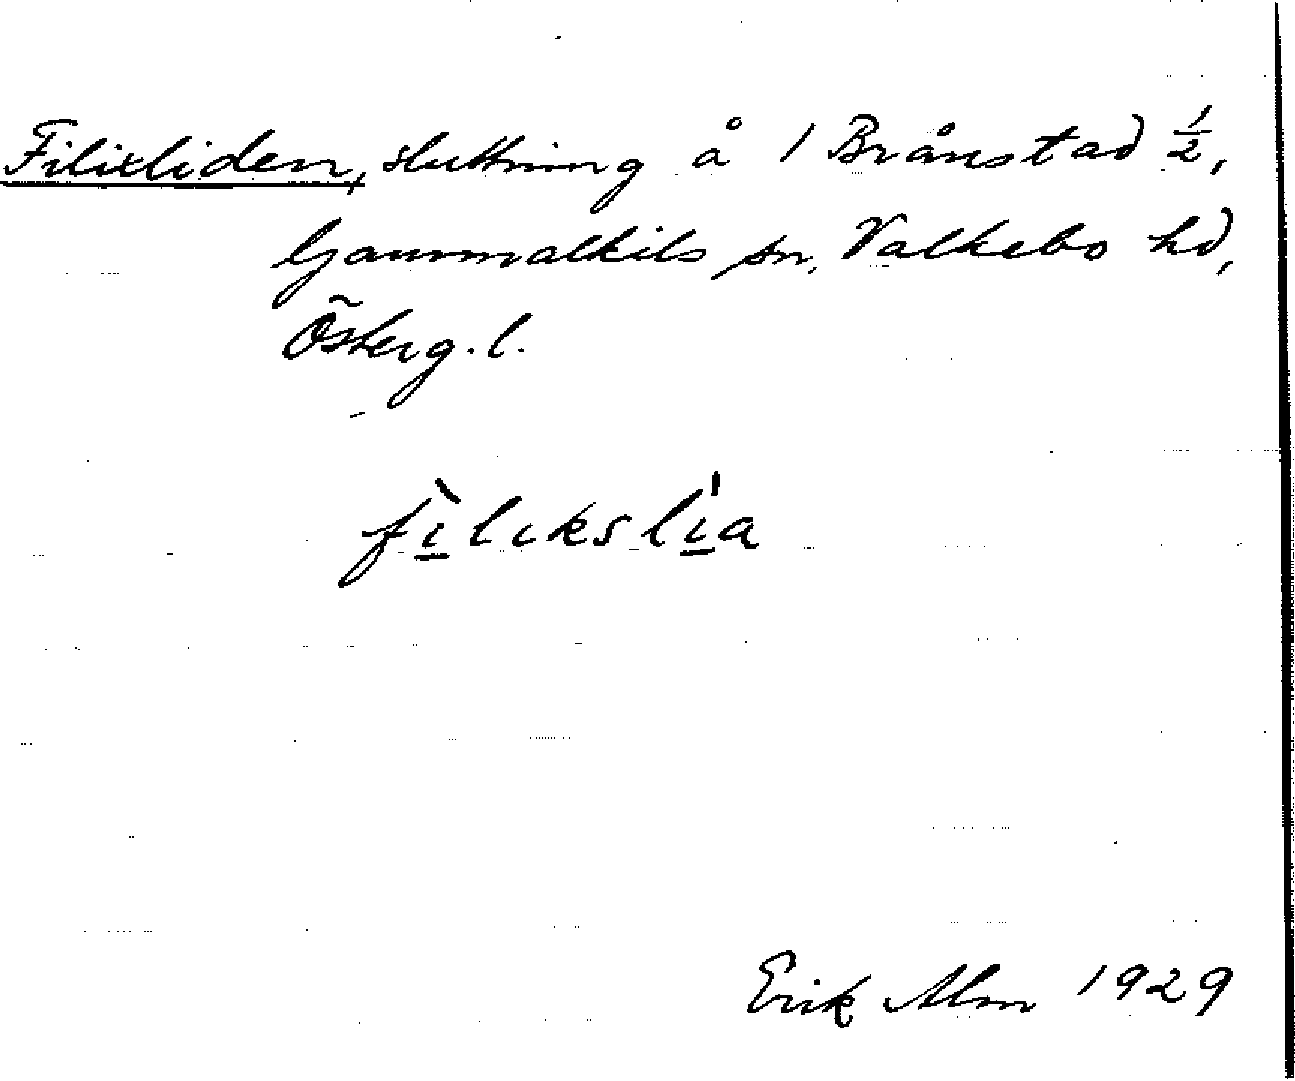 Filixliden, sluttning å 1 Brånstad ½,
Gammalkils sn, Valkebo hd,
Österg. l.
fìlıkslı̍a
Erik Alm 1929